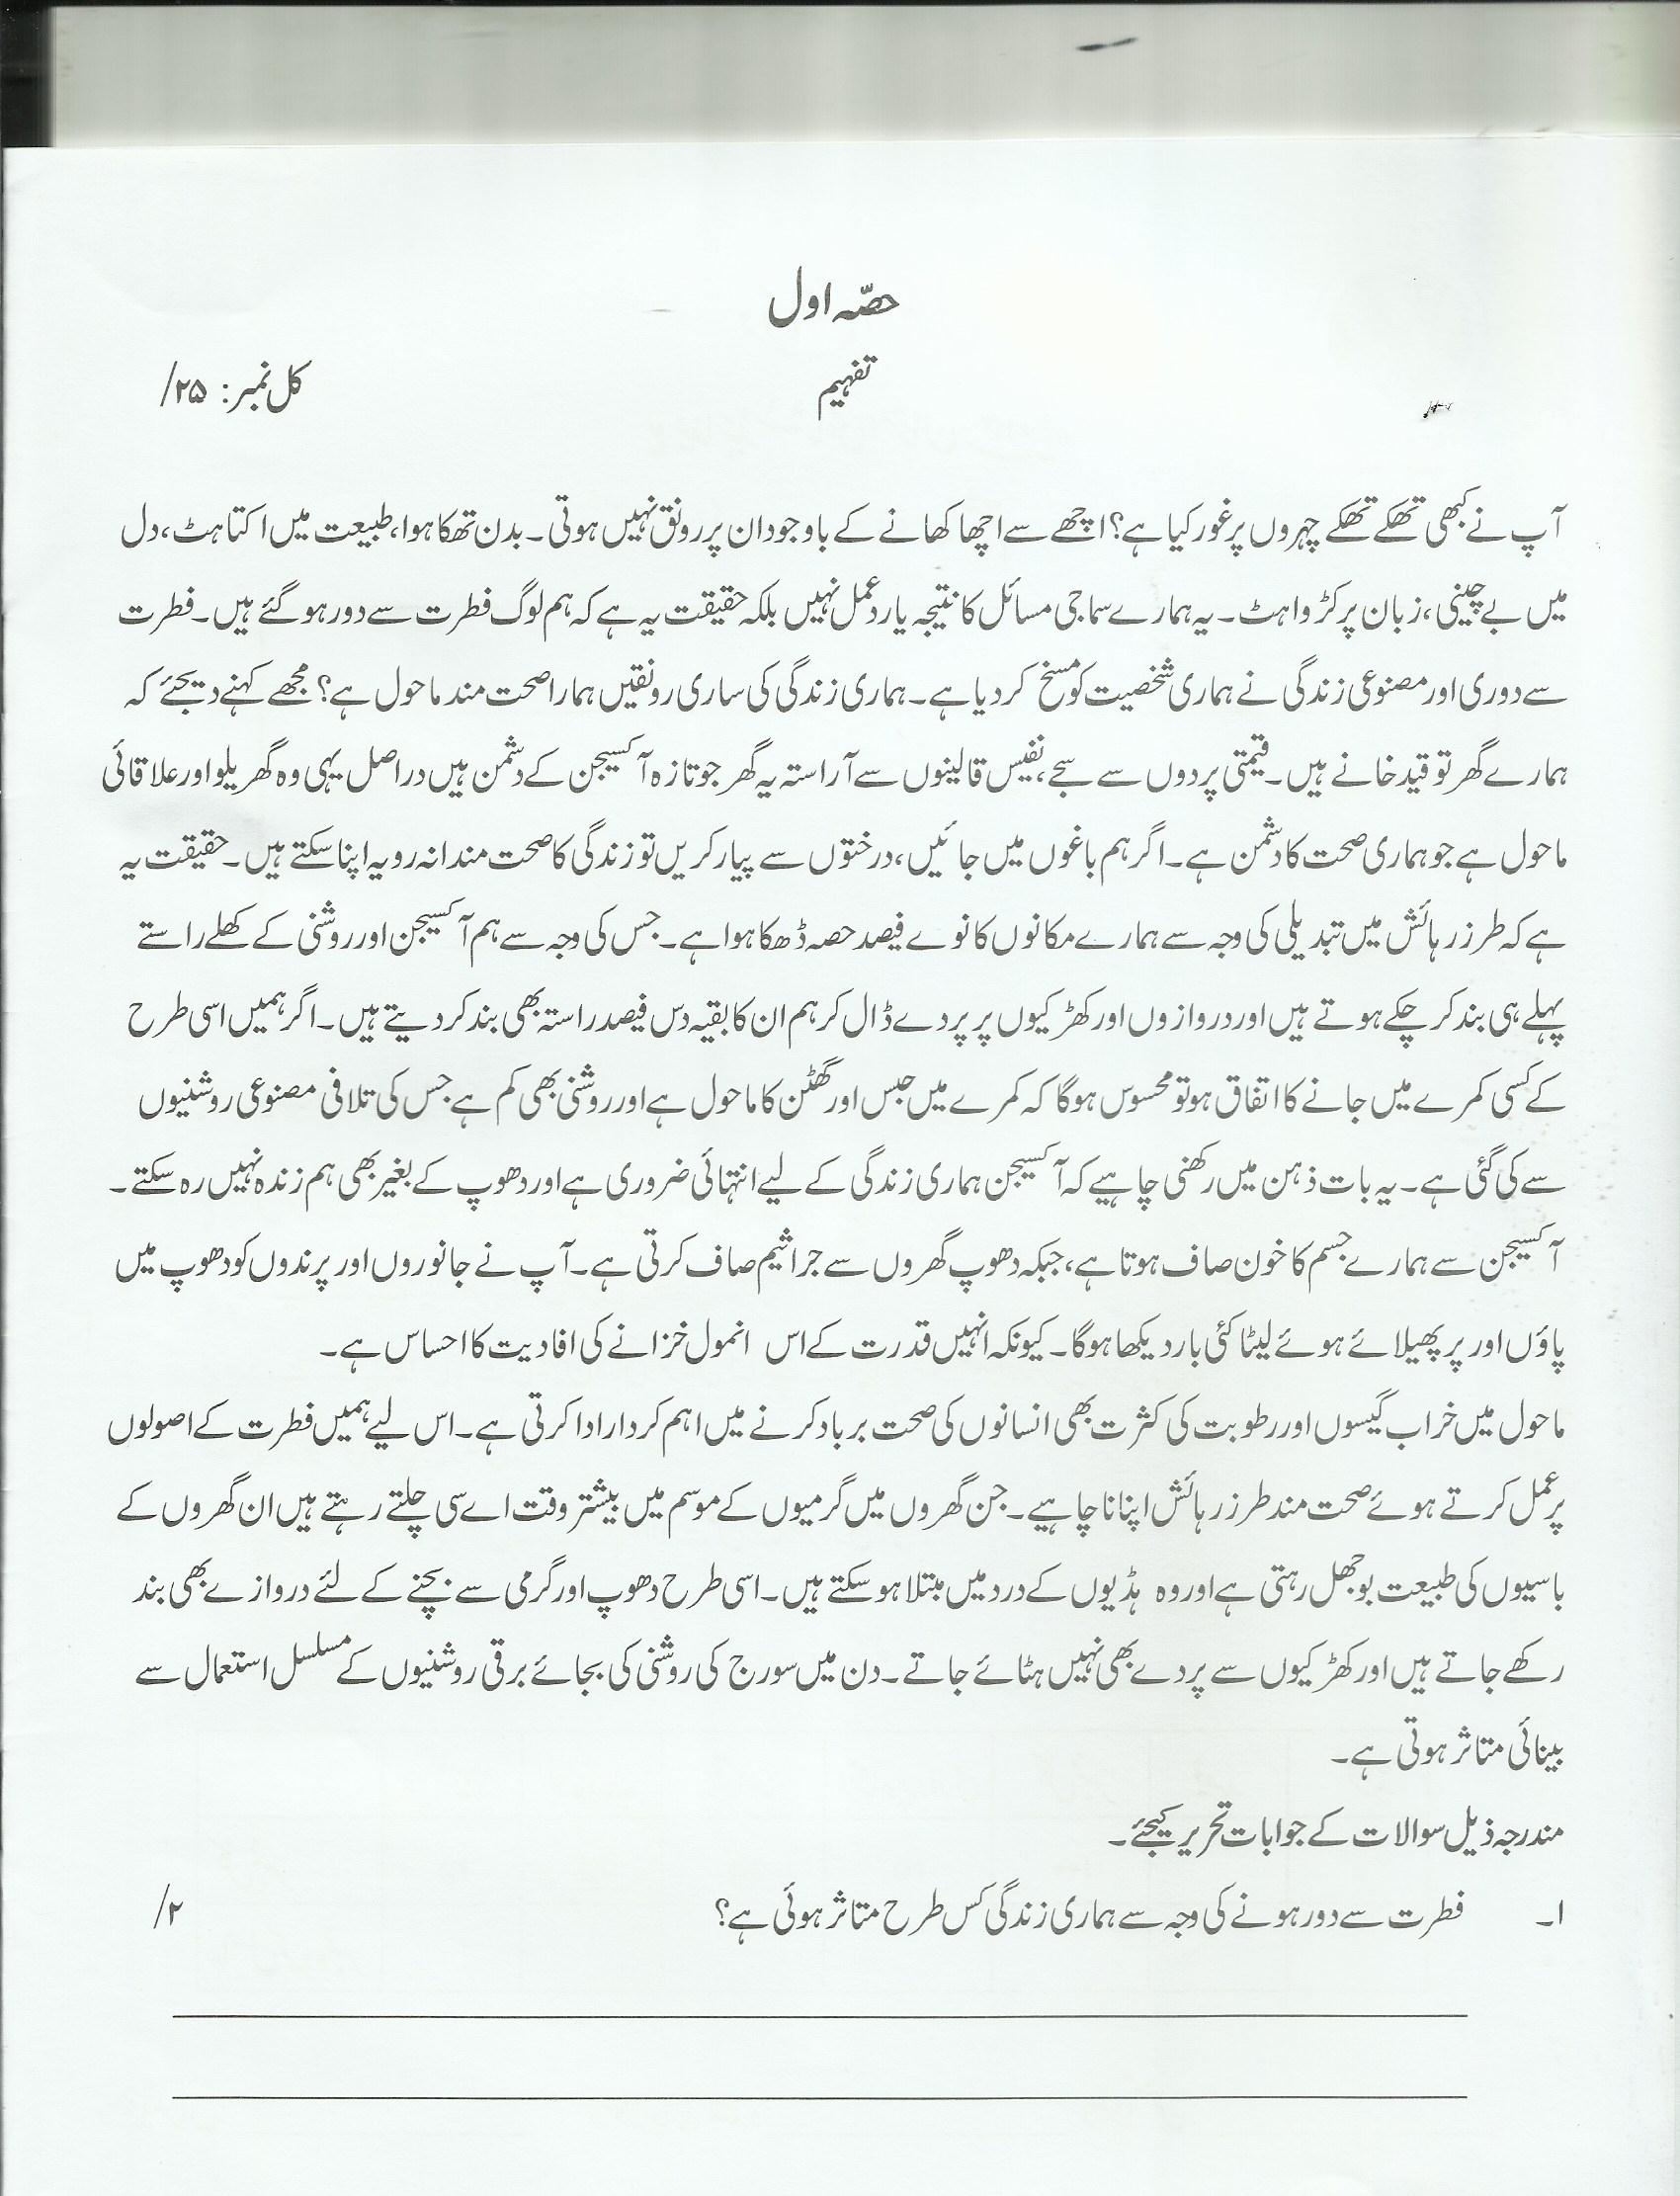 حصّہ اول
تفہیم
کل نمبر: ۲۵/
آپ نے کبھی تھکے تھکے چہروں پر غور کیا ہے؟ اچھے سے اچھا کھانے کے باوجود ان پر رونق نہیں ہوتی۔ بدن تھکا ہوا، طبیعت میں اکتاہٹ، دل
میں بے چینی، زبان پر کڑواہٹ۔ یہ ہمارے سماجی مسائل کا نتیجہ یا ردعمل نہیں بلکہ حقیقت یہ ہے کہ ہم لوگ فطرت سے دور ہو گئے ہیں۔ فطرت
سے دوری اور مصنوعی زندگی نے ہماری شخصیت کو مسخ کر دیا ہے۔ ہماری زندگی کی ساری رونقیں ہمارا صحت مند ماحول ہے؟ مجھے کہنے دیجئے کہ
ہمارے گھر تو قید خانے ہیں۔ قیمتی پردوں سے سجے، نفیس قالینوں سے آراستہ یہ گھر جو تازہ آکسیجن کے دشمن ہیں دراصل یہی وہ گھریلو اور علاقائی
ماحول ہے جو ہماری صحت کا دشمن ہے۔ اگر ہم باغوں میں جائیں، درختوں سے پیار کریں تو زندگی کا صحت مندانہ رویہ اپنا سکتے ہیں۔ حقیقت یہ
ہے کہ طرز رہائش میں تبدیلی کی وجہ سے ہمارے مکانوں کا نوے فیصد حصہ ڈھکا ہوا ہے۔ جس کی وجہ سے ہم آکسیجن اور روشنی کے کھلے راستے
پہلے ہی بند کر چکے ہوتے ہیں اور دروازوں اور کھڑکیوں پر پردے ڈال کر ہم ان کا بقیہ دس فیصد راستہ بھی بند کر دیتے ہیں۔ اگر ہمیں اسی طرح
کے کسی کمرے میں جانے کا اتفاق ہو تو محسوس ہوگا کہ کمرے میں حبس اور گھٹن کا ماحول ہے اور روشنی بھی کم ہے جس کی تلافی مصنوعی روشنیوں
سے کی گئی ہے۔ یہ بات ذہن میں رکھنی چاہیے کہ آکسیجن ہماری زندگی کے لیے انتہائی ضروری ہے اور دھوپ کے بغیر بھی ہم زندہ نہیں رہ سکتے۔
آکسیجن سے ہمارے جسم کا خون صاف ہوتا ہے، جبکہ دھوپ گھروں سے جراثیم صاف کرتی ہے۔ آپ نے جانوروں اور پرندوں کو دھوپ میں
پاؤں اور پر پھیلائے ہوئے لیٹا کئی بار دیکھا ہوگا۔ کیونکہ انہیں قدرت کے اس انمول خزانے کی افادیت کا احساس ہے۔
ماحول میں خراب گیسوں اور رطوبت کی کثرت بھی انسانوں کی صحت برباد کرنے میں اہم کردار ادا کرتی ہے۔ اس لیے ہمیں فطرت کے اصولوں
پر عمل کرتے ہوئے صحت مند طرز رہائش اپنانا چاہیے۔ جن گھروں میں گرمیوں کے موسم میں بیشتر وقت اے سی چلتے رہتے ہیں ان گھروں کے
باسیوں کی طبیعت بوجھل رہتی ہے اور وہ ہڈیوں کے درد میں مبتلا ہو سکتے ہیں۔ اسی طرح دھوپ اور گرمی سے بچنے کے لئے دروازے بھی بند
رکھے جاتے ہیں اور کھڑکیوں سے پردے بھی نہیں ہٹائے جاتے۔ دن میں سورج کی روشنی کی بجائے برقی روشنیوں کے مسلسل استعمال سے
بینائی متاثر ہوتی ہے۔
مندرجہ ذیل سوالات کے جوابات تحریر کیجئے۔
۱۔ فطرت سے دور ہونے کی وجہ سے ہماری زندگی کس طرح متاثر ہوئی ہے؟ ۲/